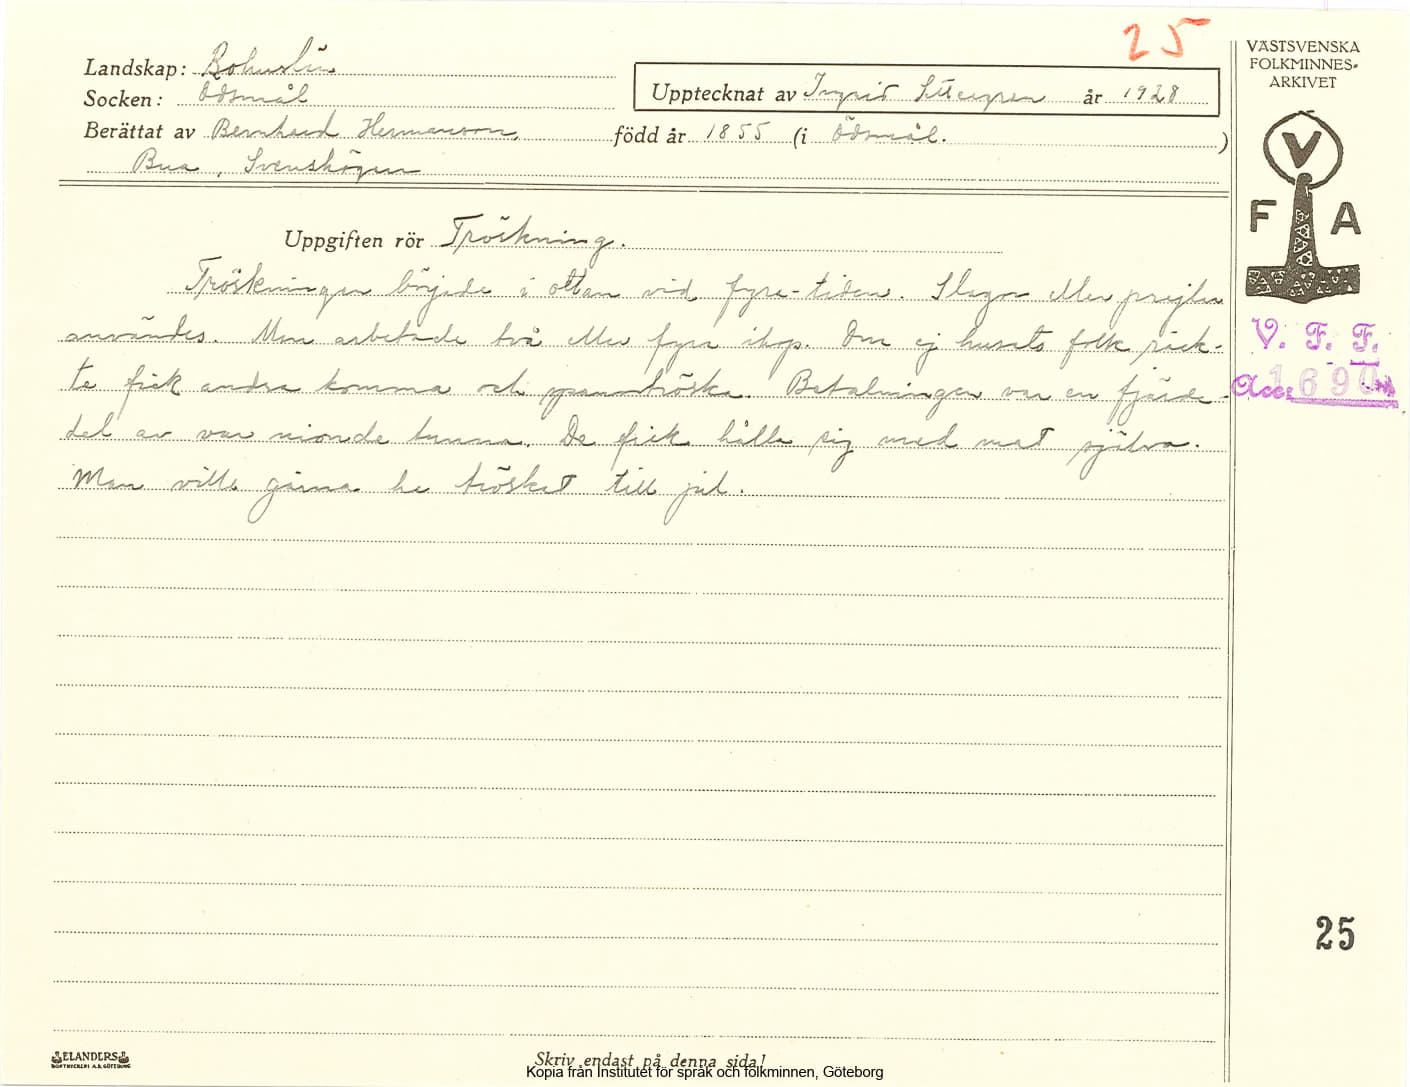 25
Landskap: Bohuslän
Socken: Ödsmål
Upptecknat av Ingrid år 1928
Berättat av Bernhard Hermanson, född år 1855 (i Ödsmål. )
Bua, Svenshögen
VÄSTSVENSKA
FOLKMINNES-
ARKIVET
V
F A
V. F. F.
Acc. 1690
Uppgiften rör Tröskning.
Tröskningen började i ottan vid fyra-tiden. Slagor eller preglar
användes. Man arbetade två eller fyra ihop. Om ej husets folk räck-
te fick andra komma och tröska. Betalningen var en fjärde-
del av var nionde tunna. De fick hålla sig med mat själva.
Man ville gärna ha tröskat till jul.
25
ELANDERS
BOKTRYCKERI A.B. GÖTEBORG
Skriv endast på denna sida!
Kopia från Institutet för språk och folkminnen, Göteborg